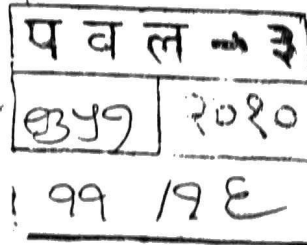 प व ल - ३
२०१०
११ / १६